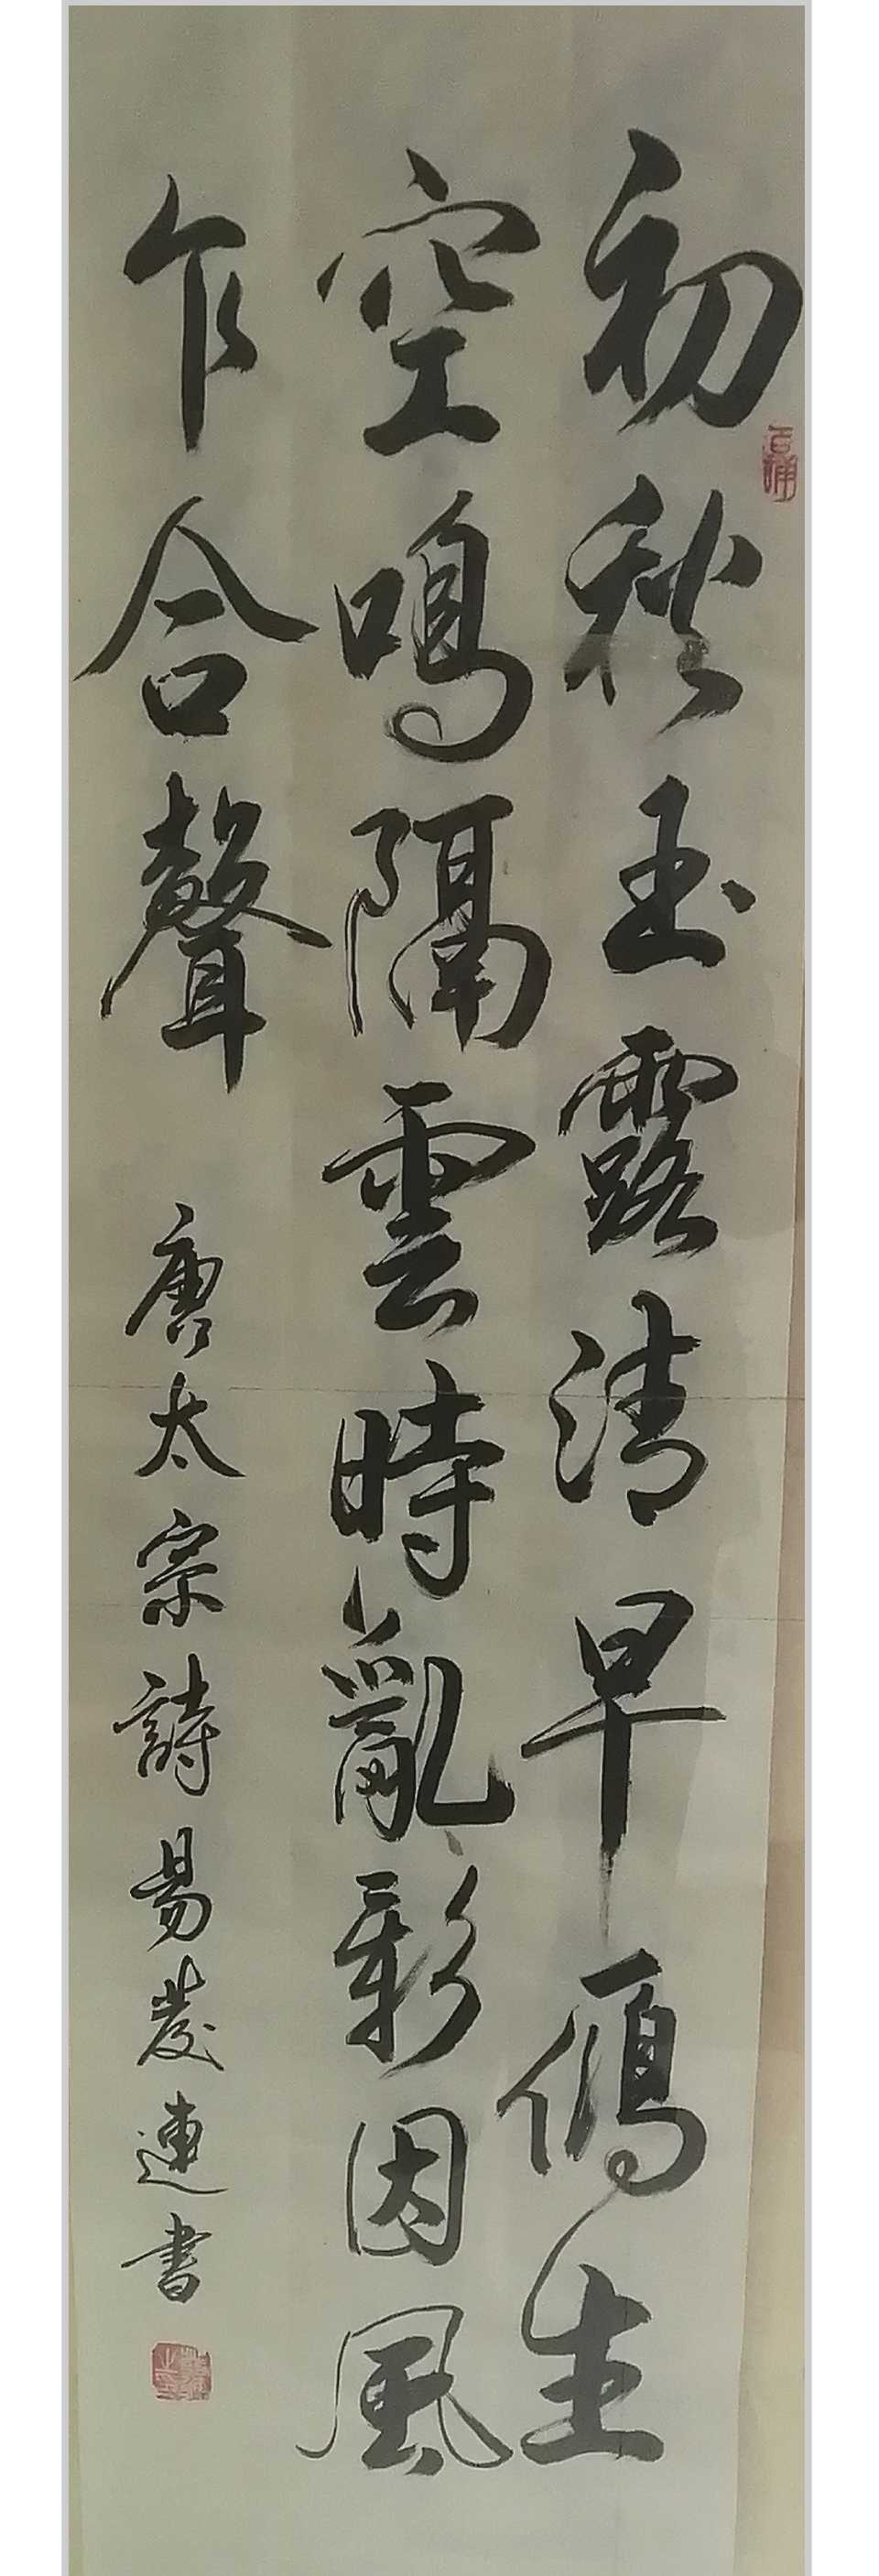 初秋玉露清早鴈出
空鳴隔雲時亂影因風
乍含聲 唐太宗詩 易發連書